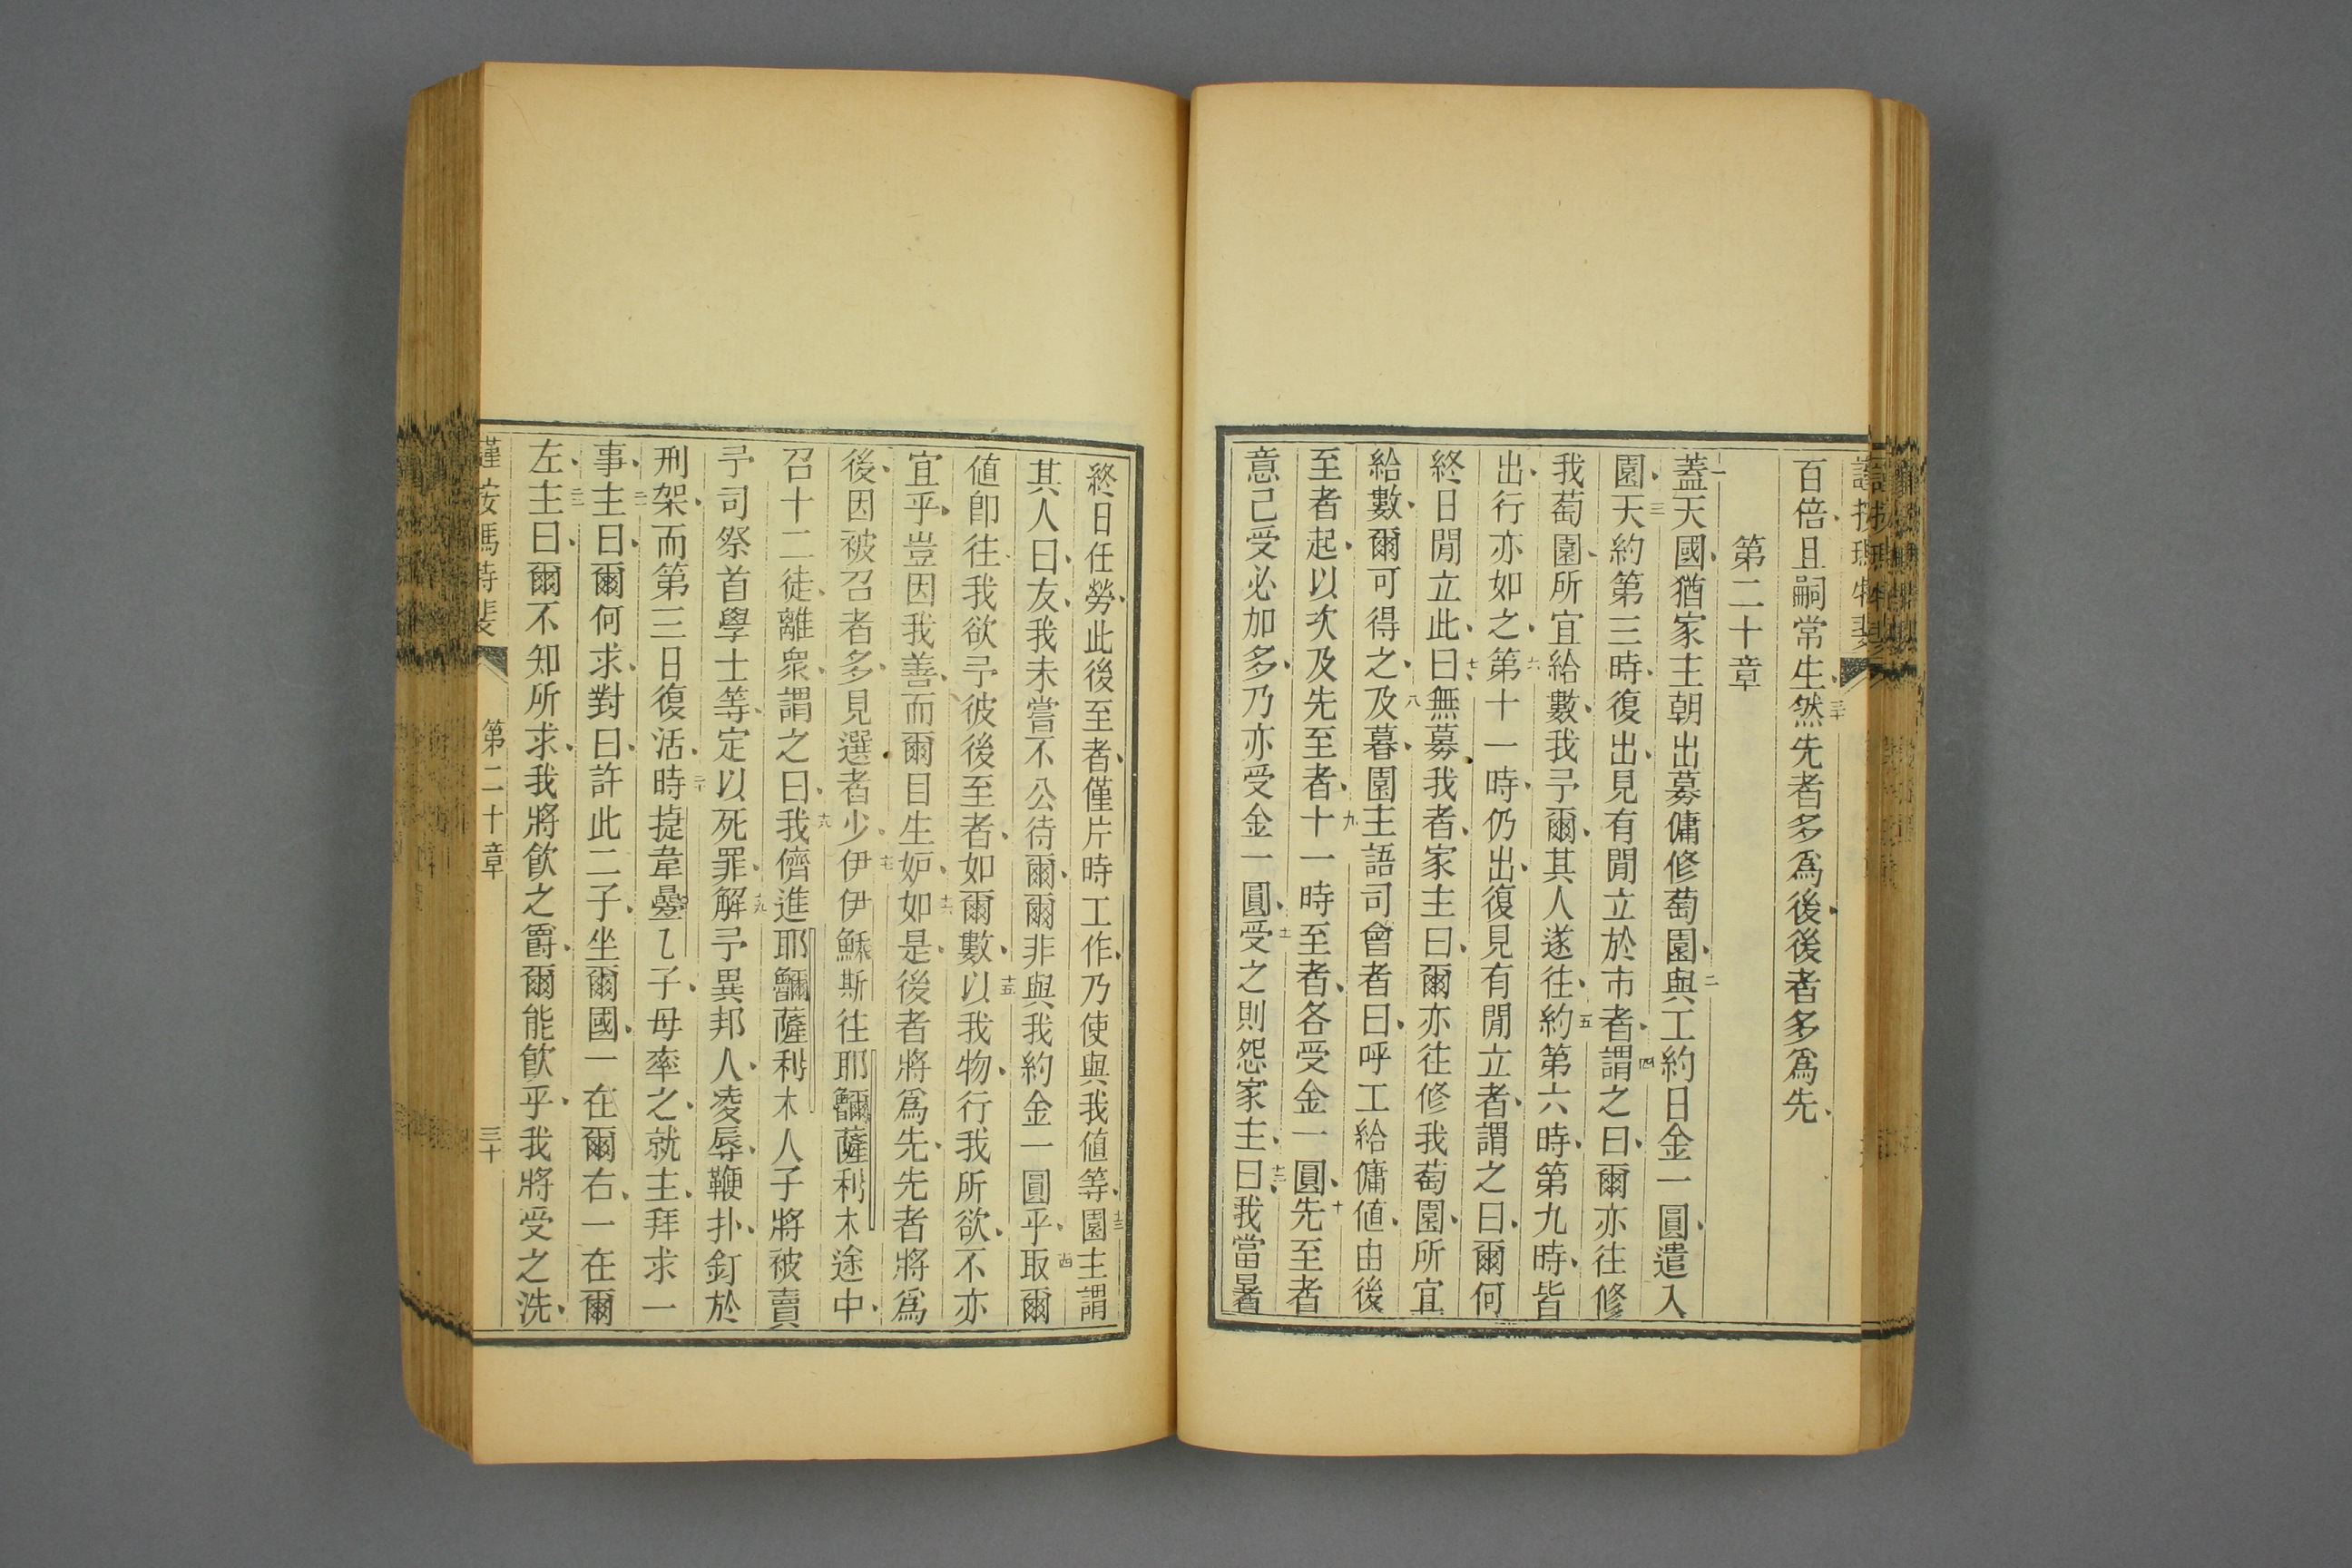 百倍、且嗣常生、三十然先者多爲後、後者多爲先、
第二十章
一蓋天國、猶家主朝出募傭修萄園、二與工約日金一圓、遣入
園、三天約第三時、復出、見有閒立於市者、四謂之曰、爾亦往修
我萄園、所宜給數、我予爾、其人遂往、五約第六時、第九時、皆
出、行亦如之、六第十一時、仍出、復見有閒立者、謂之曰、爾何
終日閒立此、七曰、無募我者、家主曰、爾亦往修我萄園、所宜
給數、爾可得之、八及暮、園主語司會者曰、呼工給傭値、由後
至者起、以次及先至者、九十一時至者、各受金一圓、十先至者
意己受必加多、乃亦受金一圓、十一受之則怨家主、十二曰、我當暑
終日任勞、此後至者、僅片時工作、乃使與我値等、十三園主謂
其人曰、友、我未嘗不公待爾、爾非與我約金一圓乎、十四取爾
値卽往、我欲予彼後至者、如爾數、十五以我物、行我所欲、不亦
宜乎、豈因我善、而爾目生妒、十六如是、後者將爲先、先者將爲
後、因被召者多、見選者少、十七伊伊穌斯往耶䥐薩利木途中、
召十二徒、離衆、謂之曰、十八我儕進耶䥐薩利木人子將被賣
予司祭首學士等、定以死罪、十九解予異邦人、凌辱、鞭扑、釘於
刑架、而第三日復活、二十時捷韋疊乙子、母率之、就主、拜求一
事、二一主曰、爾何求、對曰、許此二子、坐爾國、一在爾右、一在爾
左、二二主曰、爾不知所求、我將飮之爵、爾能飮乎、我將受之洗、
謹按瑪特斐
第二十章
三十